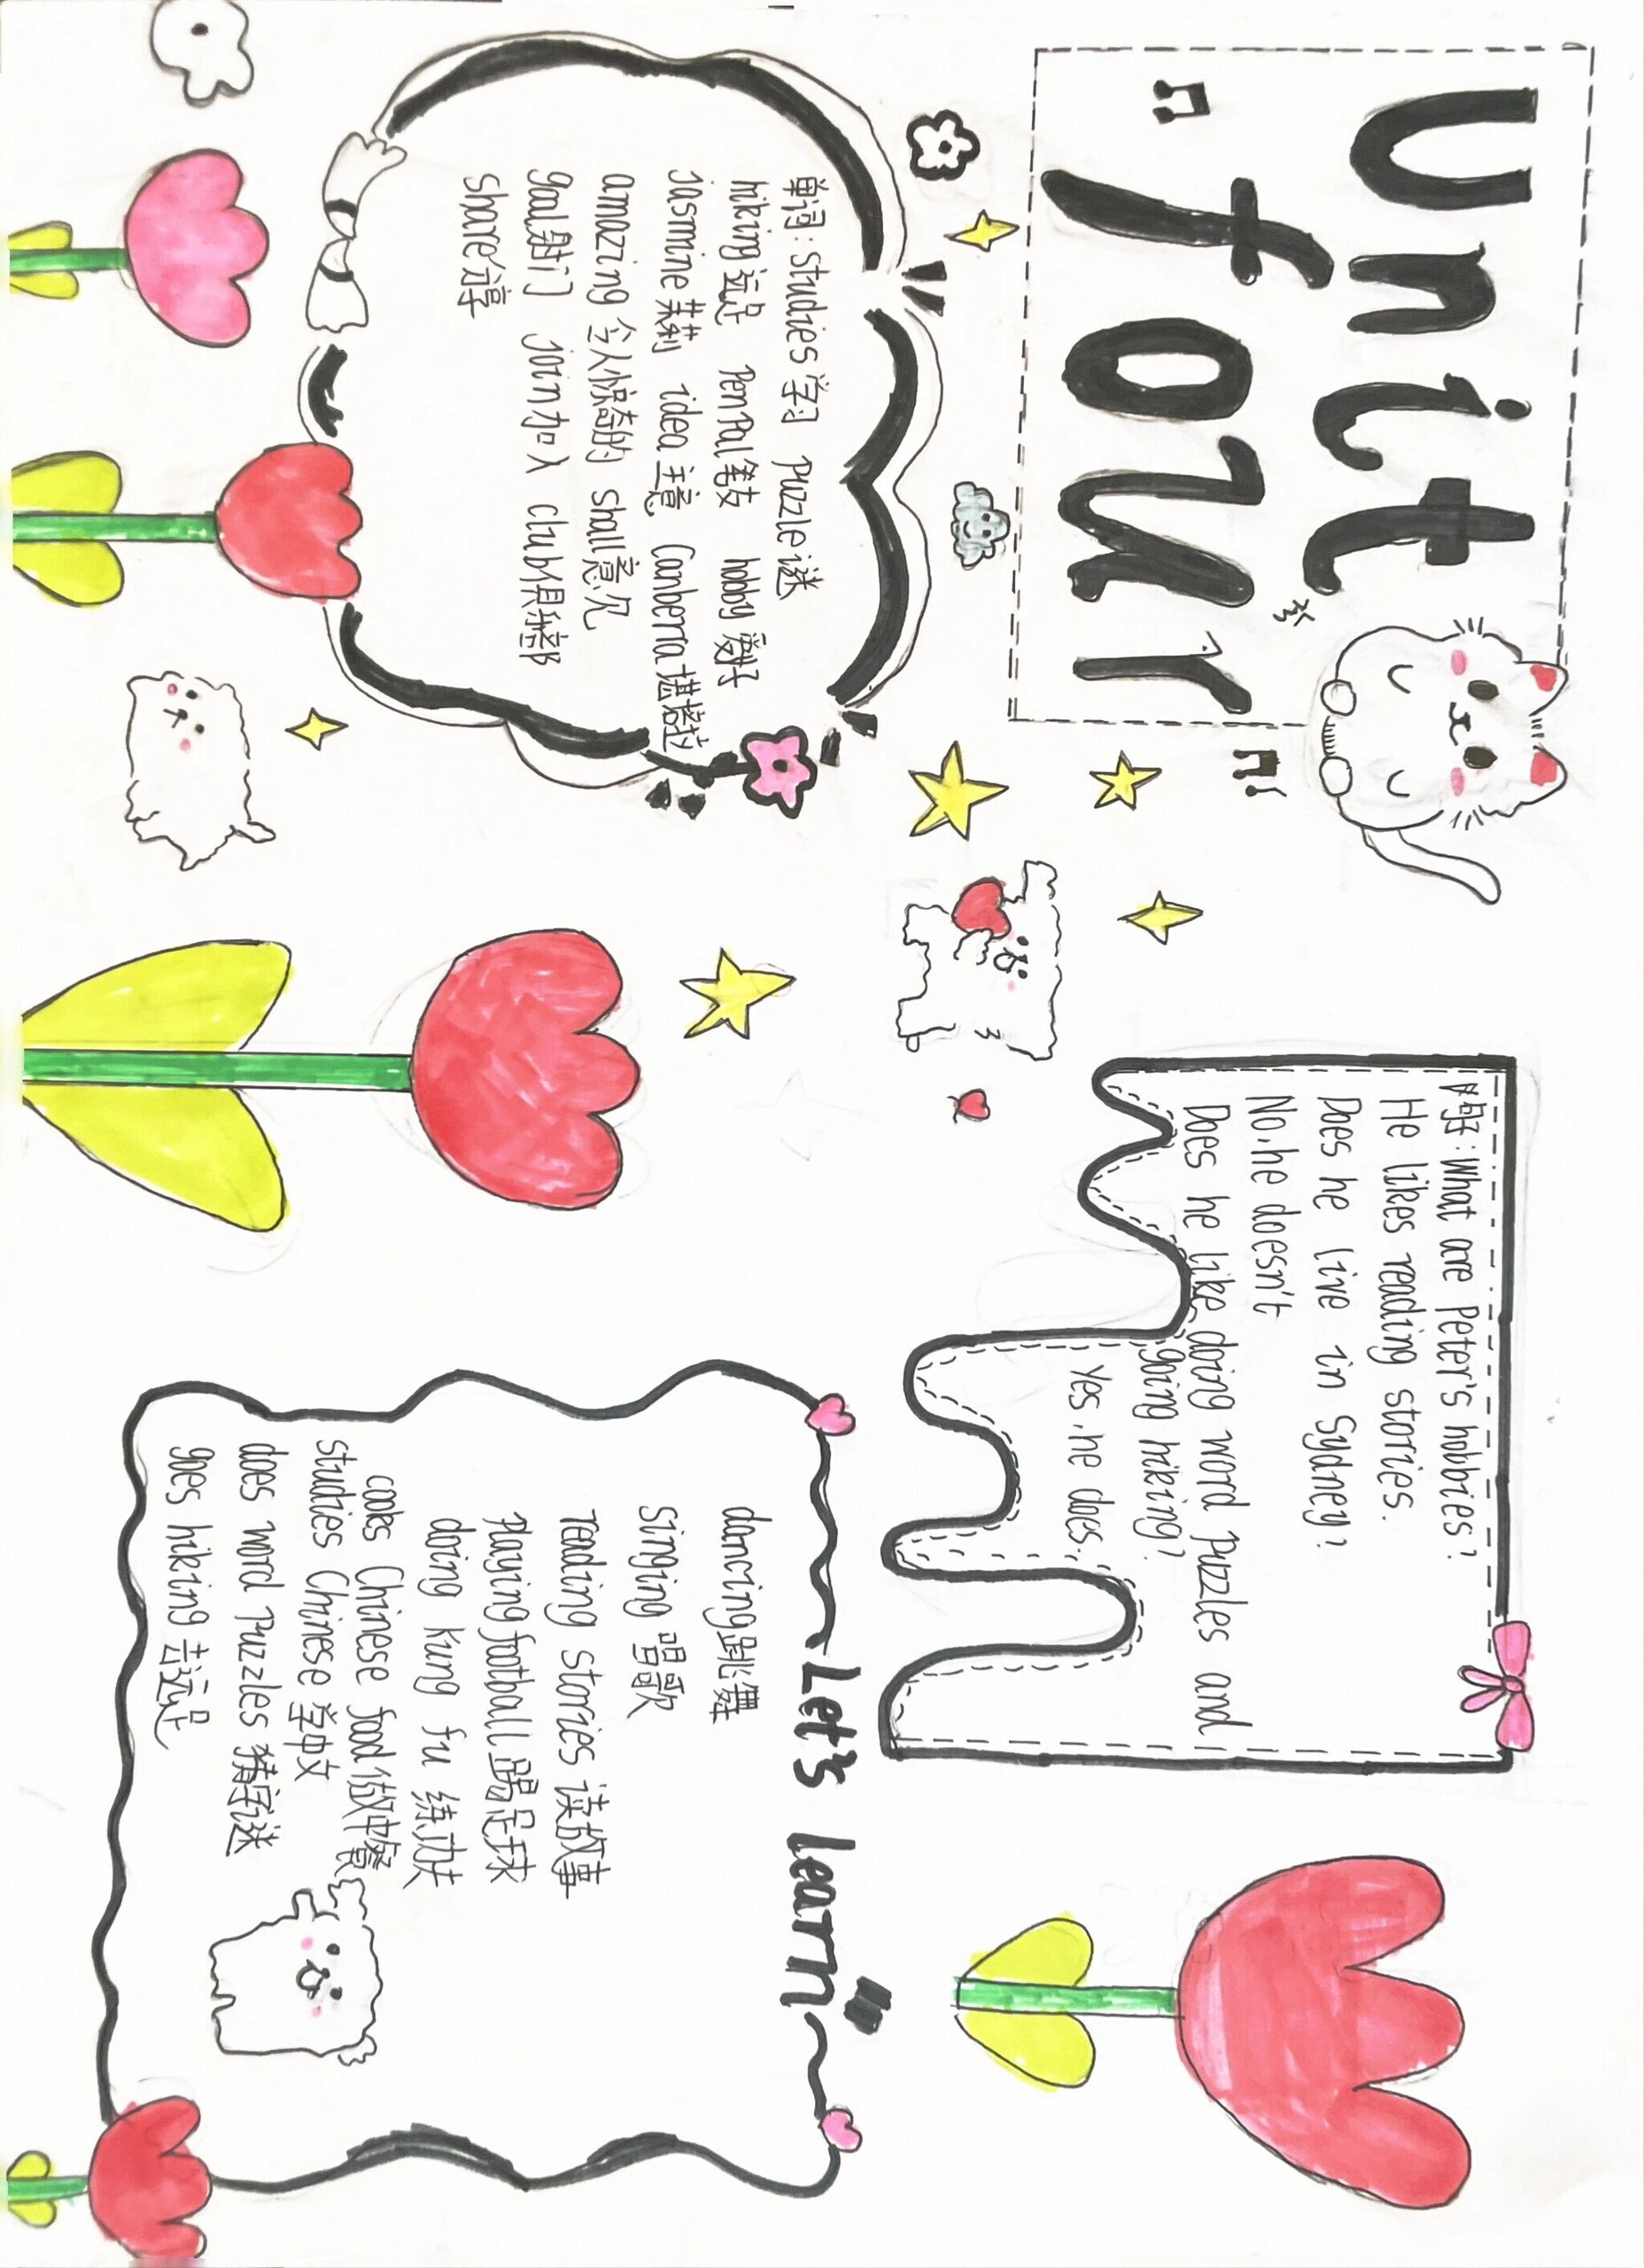 Unit
four
单词: studies 学习 puzzle 谜
hiking 远足 Pen Pal 笔友 hobby 爱好
Jasmine 茉莉 idea 主意 Canberra 堪培拉
amazing 令人惊奇的 shall
goal 射门 join 加入 club 俱乐部
share 分享
好句: What are Peter's hobbies?
He likes reading stories.
Does he live in Sydney?
No, he doesn't
Does he like doing word puzzles and
going hiking?
Yes, he does.
Let's learn
dancing 跳舞
singing 唱歌
reading stories 读故事
Playing football 踢足球
doing kung fu 练功夫
cooks Chinese food 做中餐
studies Chinese 学中文
does word Puzzles 猜字谜
goes hiking 去远足